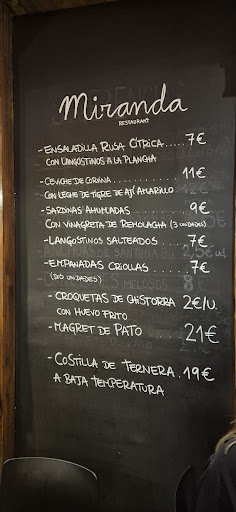 Miranda
RESTAURANT
- ENSALADILLA RUSA CÍTRICA.....7€
CON LANGOSTINOS A LA PLANCHA
- CEVICHE DE CORVINA ........... 11€
CON LECHE DE TIGRE DE AJÍ AMARILLO
- SARDINAS AHUMADAS ....... 9€
CON VINAGRETA DE REMOLACHA (3 UNIDADES)
- LANGOSTINOS SALTEADOS ..... 7€
- EMPANADAS CRIOLLAS ....... 7€
(DOS UNIDADES)
- CROQUETAS DE CHISTORRA 2€/U.
CON HUEVO FRITO
- MAGRET DE PATO ..... 21€
- COSTILLA DE TERNERA . 19€
A BAJA TEMPERATURA